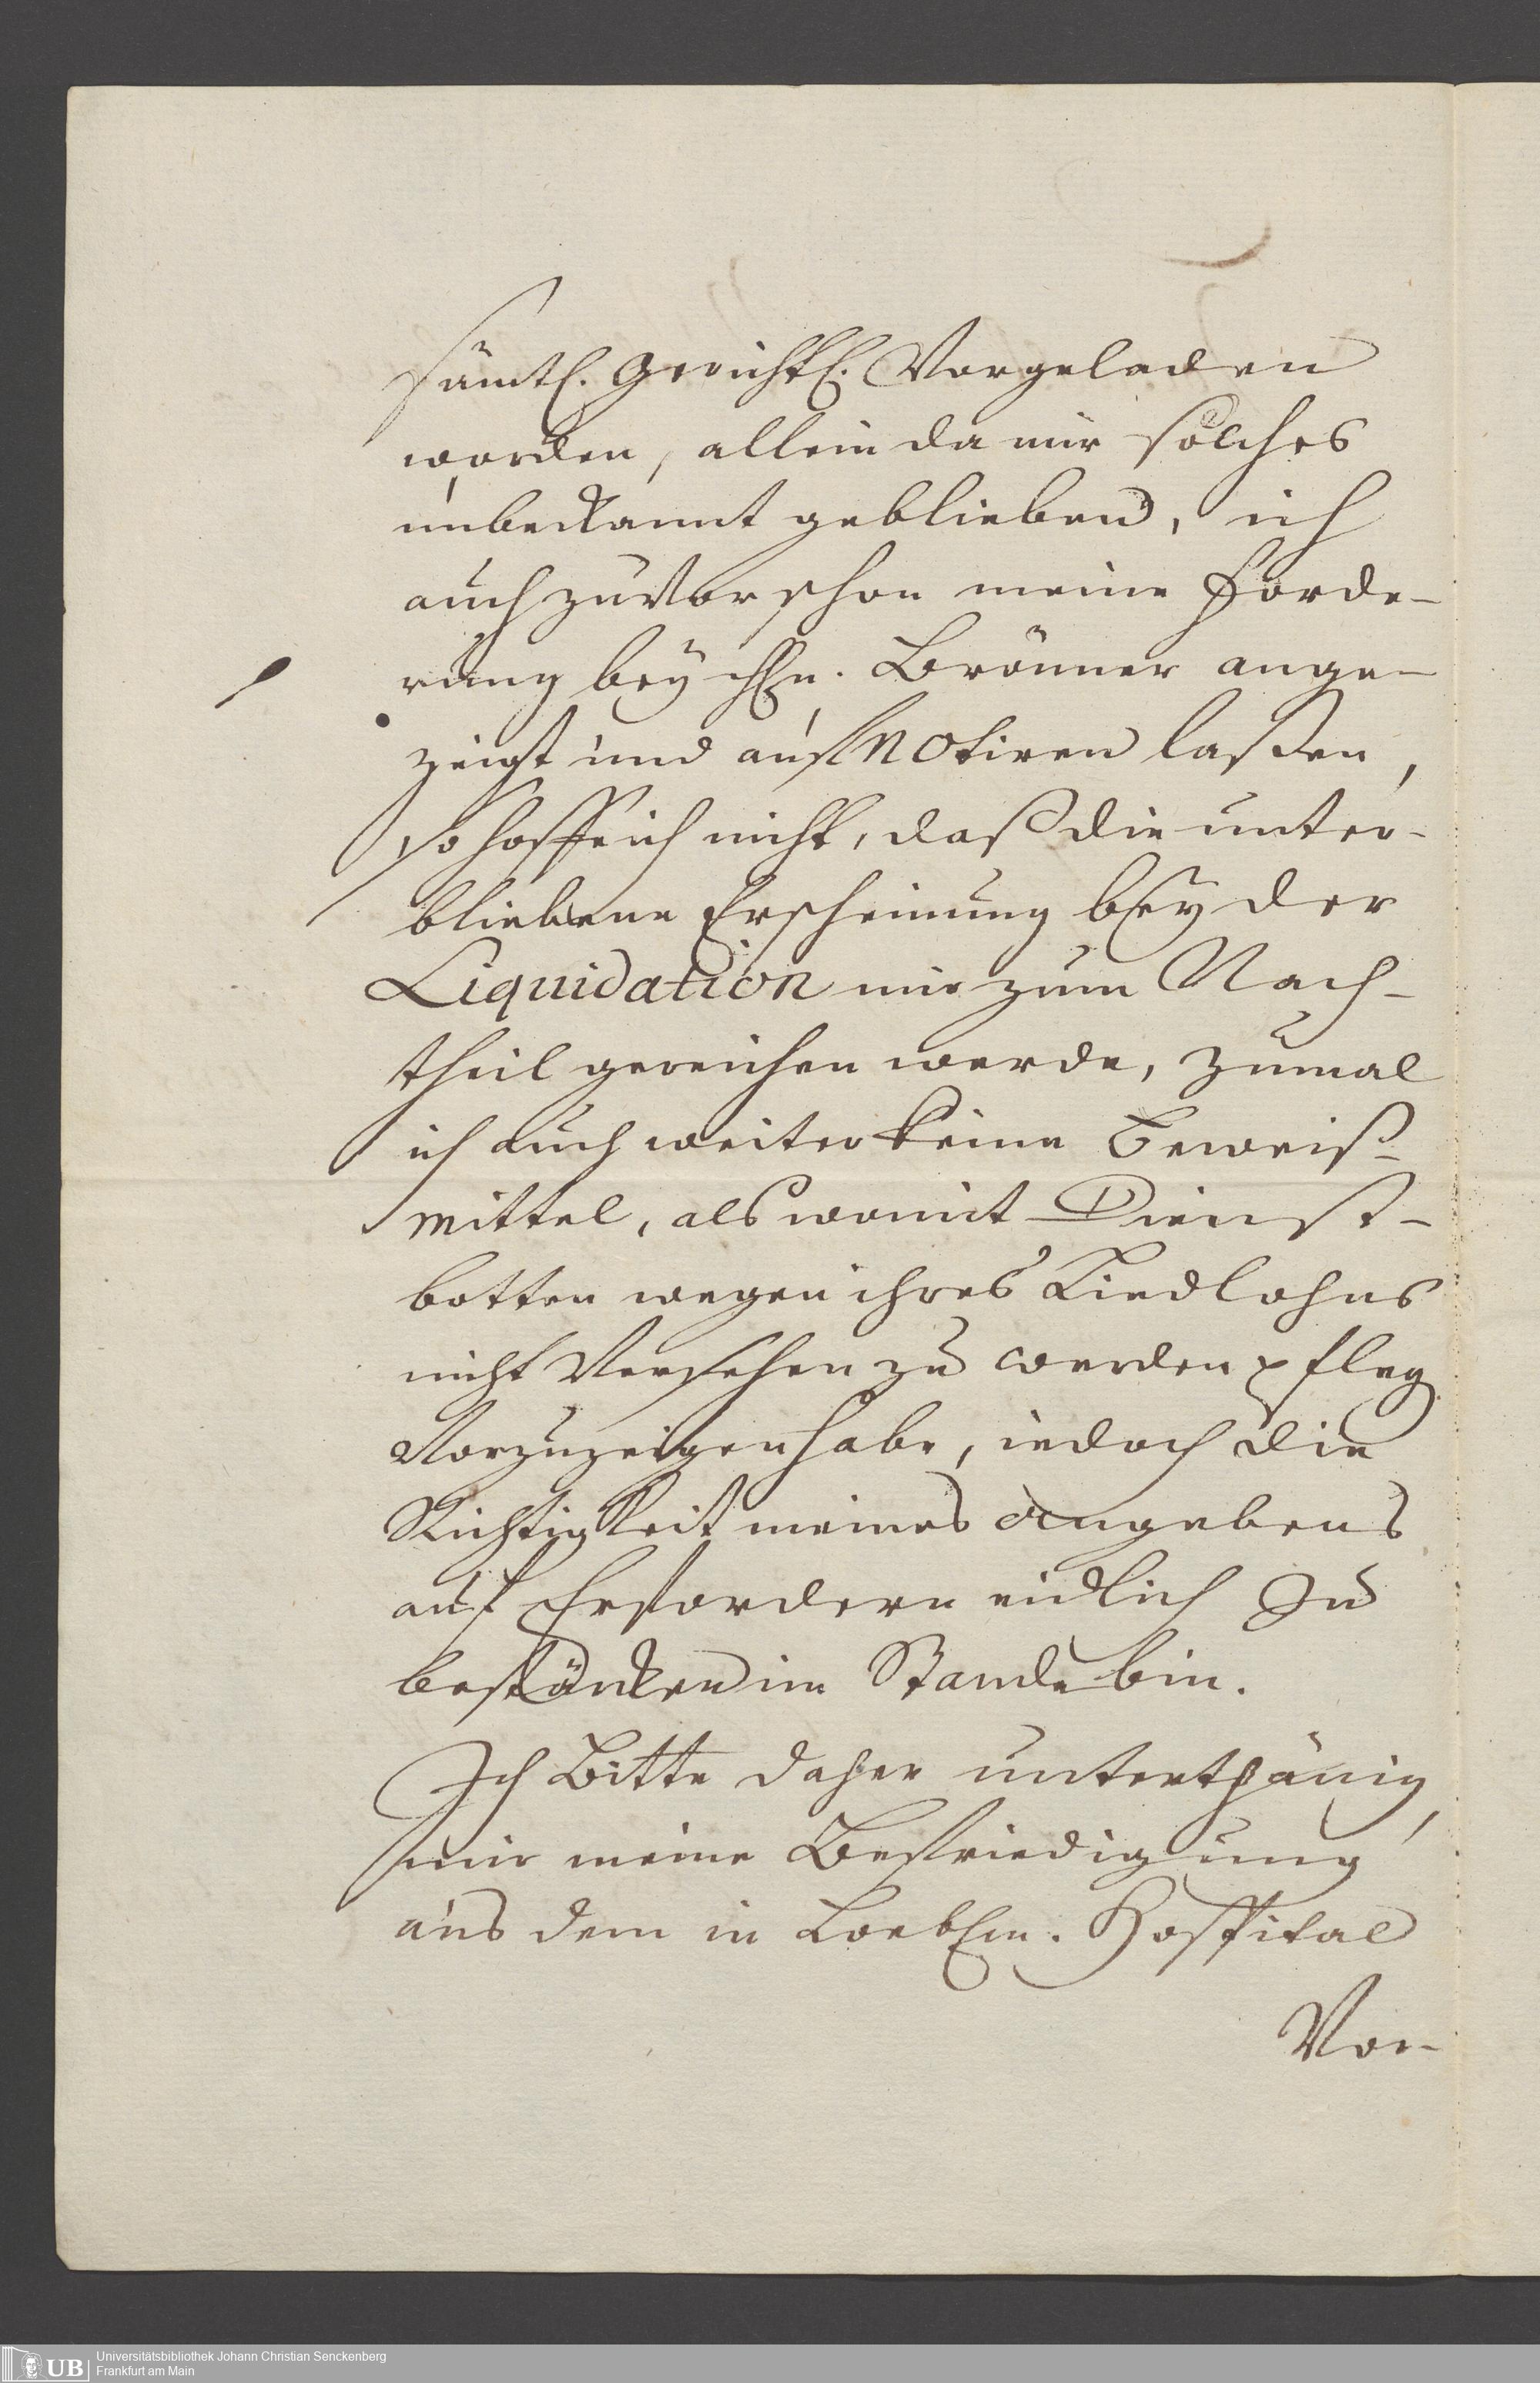 sämtl. Gerichtl. Vorgeladen
worden, allein da mir solches
unbeckannt geblieben, ich
auch zuvor schon meine Forde-
rung bey Hn. Brönner ange-
zeigt und auf Notiren laßen,
so hoffe ich nicht, daß die unter-
bliebene Erscheinung bey der
Liquidation mir zum Nach-
theil gereichen werde, zumal
ich auch weiter keine Beweiß-
mittel, als womit Dienst-
botten wegen ihres Liedlohns
nicht Versehen zu werden pfleg.
Vorzuzeigen habe, iedoch die
Richtigkeit meines Angebens
auf Erfordern eidlich zu
bestärcken im Stande bin.
Ich Bitte daher unterthänig,
mir meine Befriedigung
aus dem in Loebl. Hospital
Vor-
Universitätsbibliothek Johann Christian Senckenberg
UB Frankfurt am Main